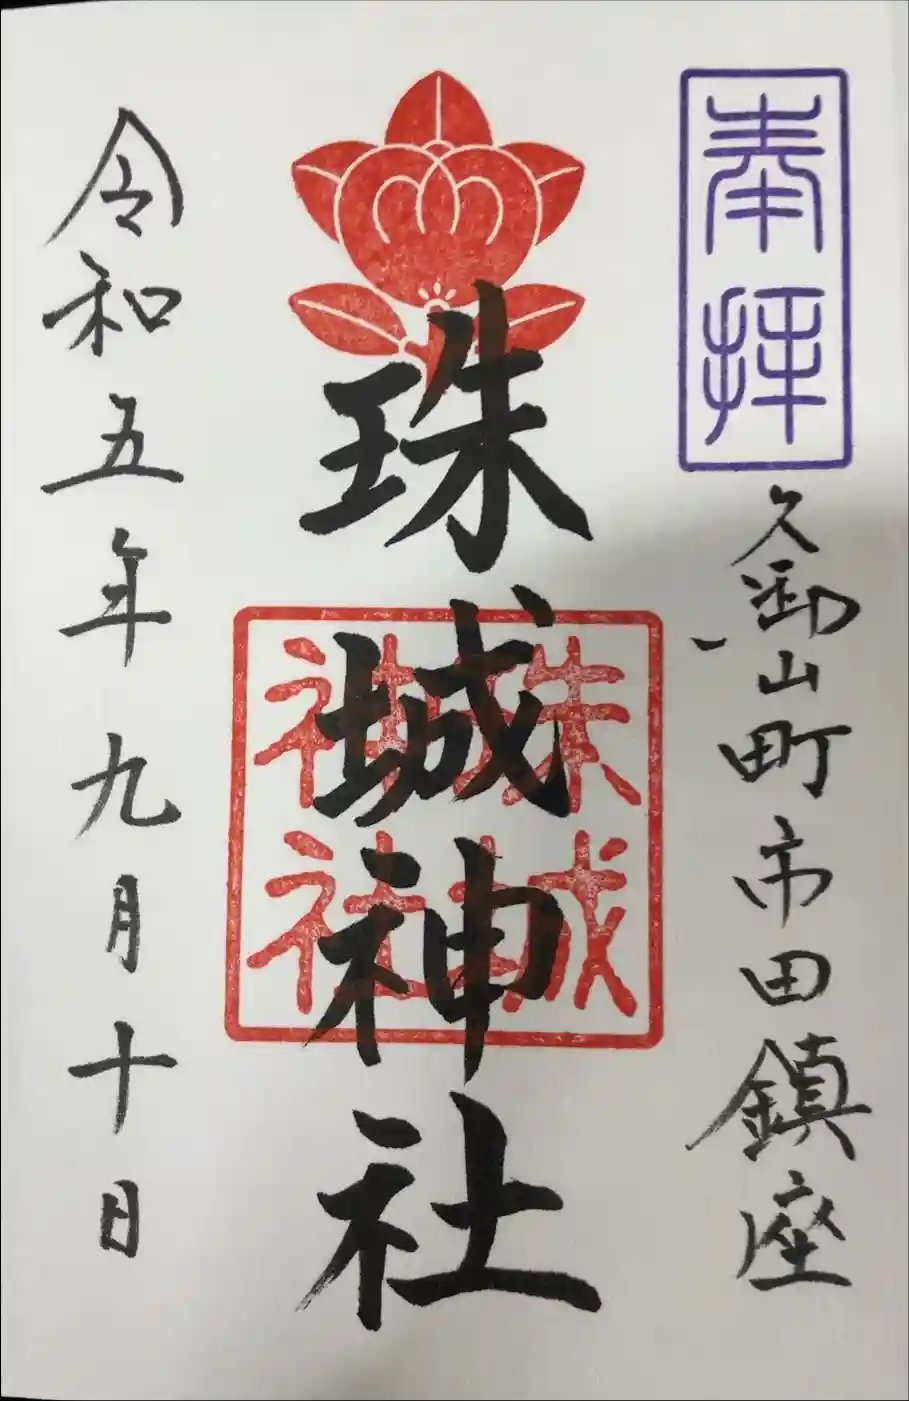 奉拝
久御山町市田鎮座
珠城神社
珠城神社
令和五年九月十日